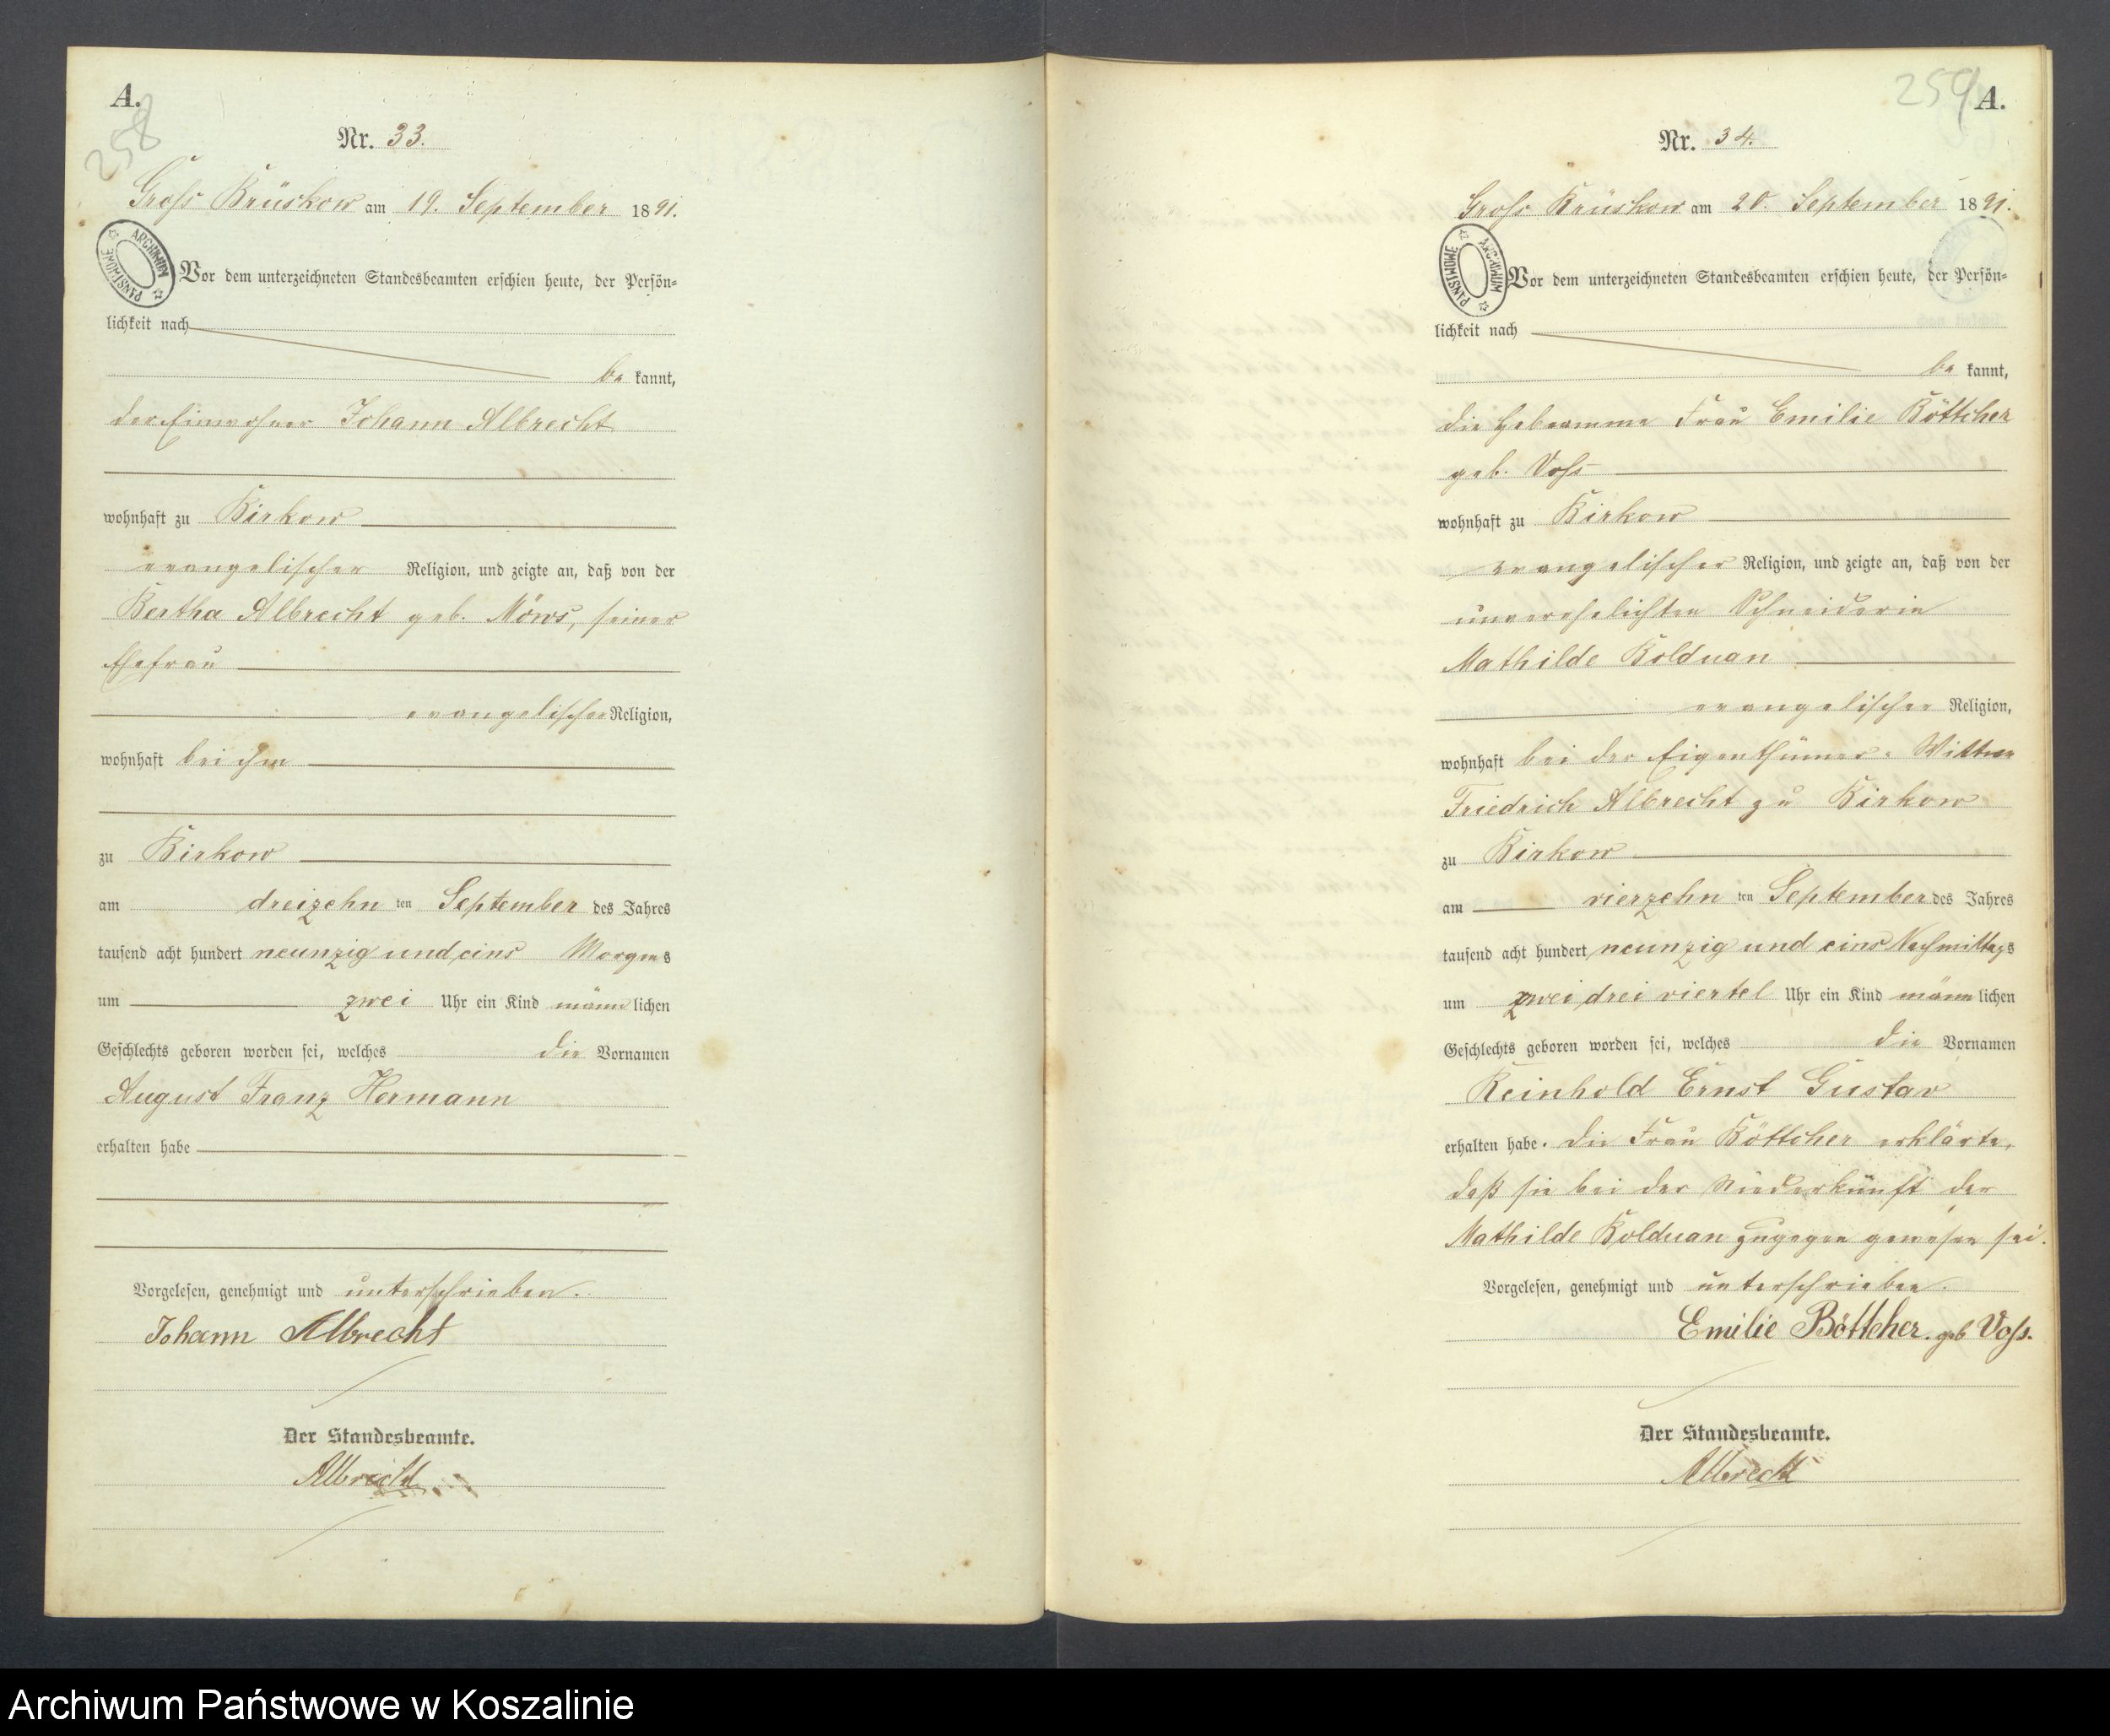 A.
258
Nr. 33.
Gross Krüskow am 19. September 1891.
ARCHIWUM PAŃSTWOWE
Vor dem unterzeichneten Standesbeamten erschien heute, der Persön-
lichkeit nach
be kannt,
der Einwohner Johann Albrecht
wohnhaft zu Birkow
evangelischer Religion, und zeigte an, daß von der
Bertha Albrecht geb. Möws, seiner
Ehefrau
evangelischer Religion,
wohnhaft bei ihm
zu Birkow
am dreizehn ten September des Jahres
tausend acht hundert neunzig und eins Morgens
um zwei Uhr ein Kind männlichen
Geschlechts geboren worden sei, welches die Vornamen
August Franz Hermann
erhalten habe
Vorgelesen, genehmigt und unterschrieben.
Johann Albrecht
Der Standesbeamte.
Albrecht
259
A.
Nr. 34.
Gross Krüskow am 20. September 1891.
ARCHIWUM PAŃSTWOWE
Vor dem unterzeichneten Standesbeamten erschien heute, der Persön-
lichkeit nach
be kannt,
die Hebeamme Frau Emilie Böttcher
geb. Voss
wohnhaft zu Birkow
evangelischer Religion, und zeigte an, daß von der
unverehelichten Schneiderin
Mathilde Kolduan
evangelischer Religion,
wohnhaft bei der Eigenthümer-Wittwe
Friedrich Albrecht zu Birkow
zu Birkow
am vierzehn ten September des Jahres
tausend acht hundert neunzig und eins Nachmittags
um zwei drei viertel Uhr ein Kind männlichen
Geschlechts geboren worden sei, welches die Vornamen
Reinhold Ernst Gustav
erhalten habe. Die Frau Böttcher erklärte,
daß sie bei der Niederkunft der
Mathilde Kolduan zugegen gewesen sei.
Vorgelesen, genehmigt und unterschrieben.
Emilie Böttcher. geb Voss.
Der Standesbeamte.
Albrecht
Archiwum Państwowe w Koszalinie